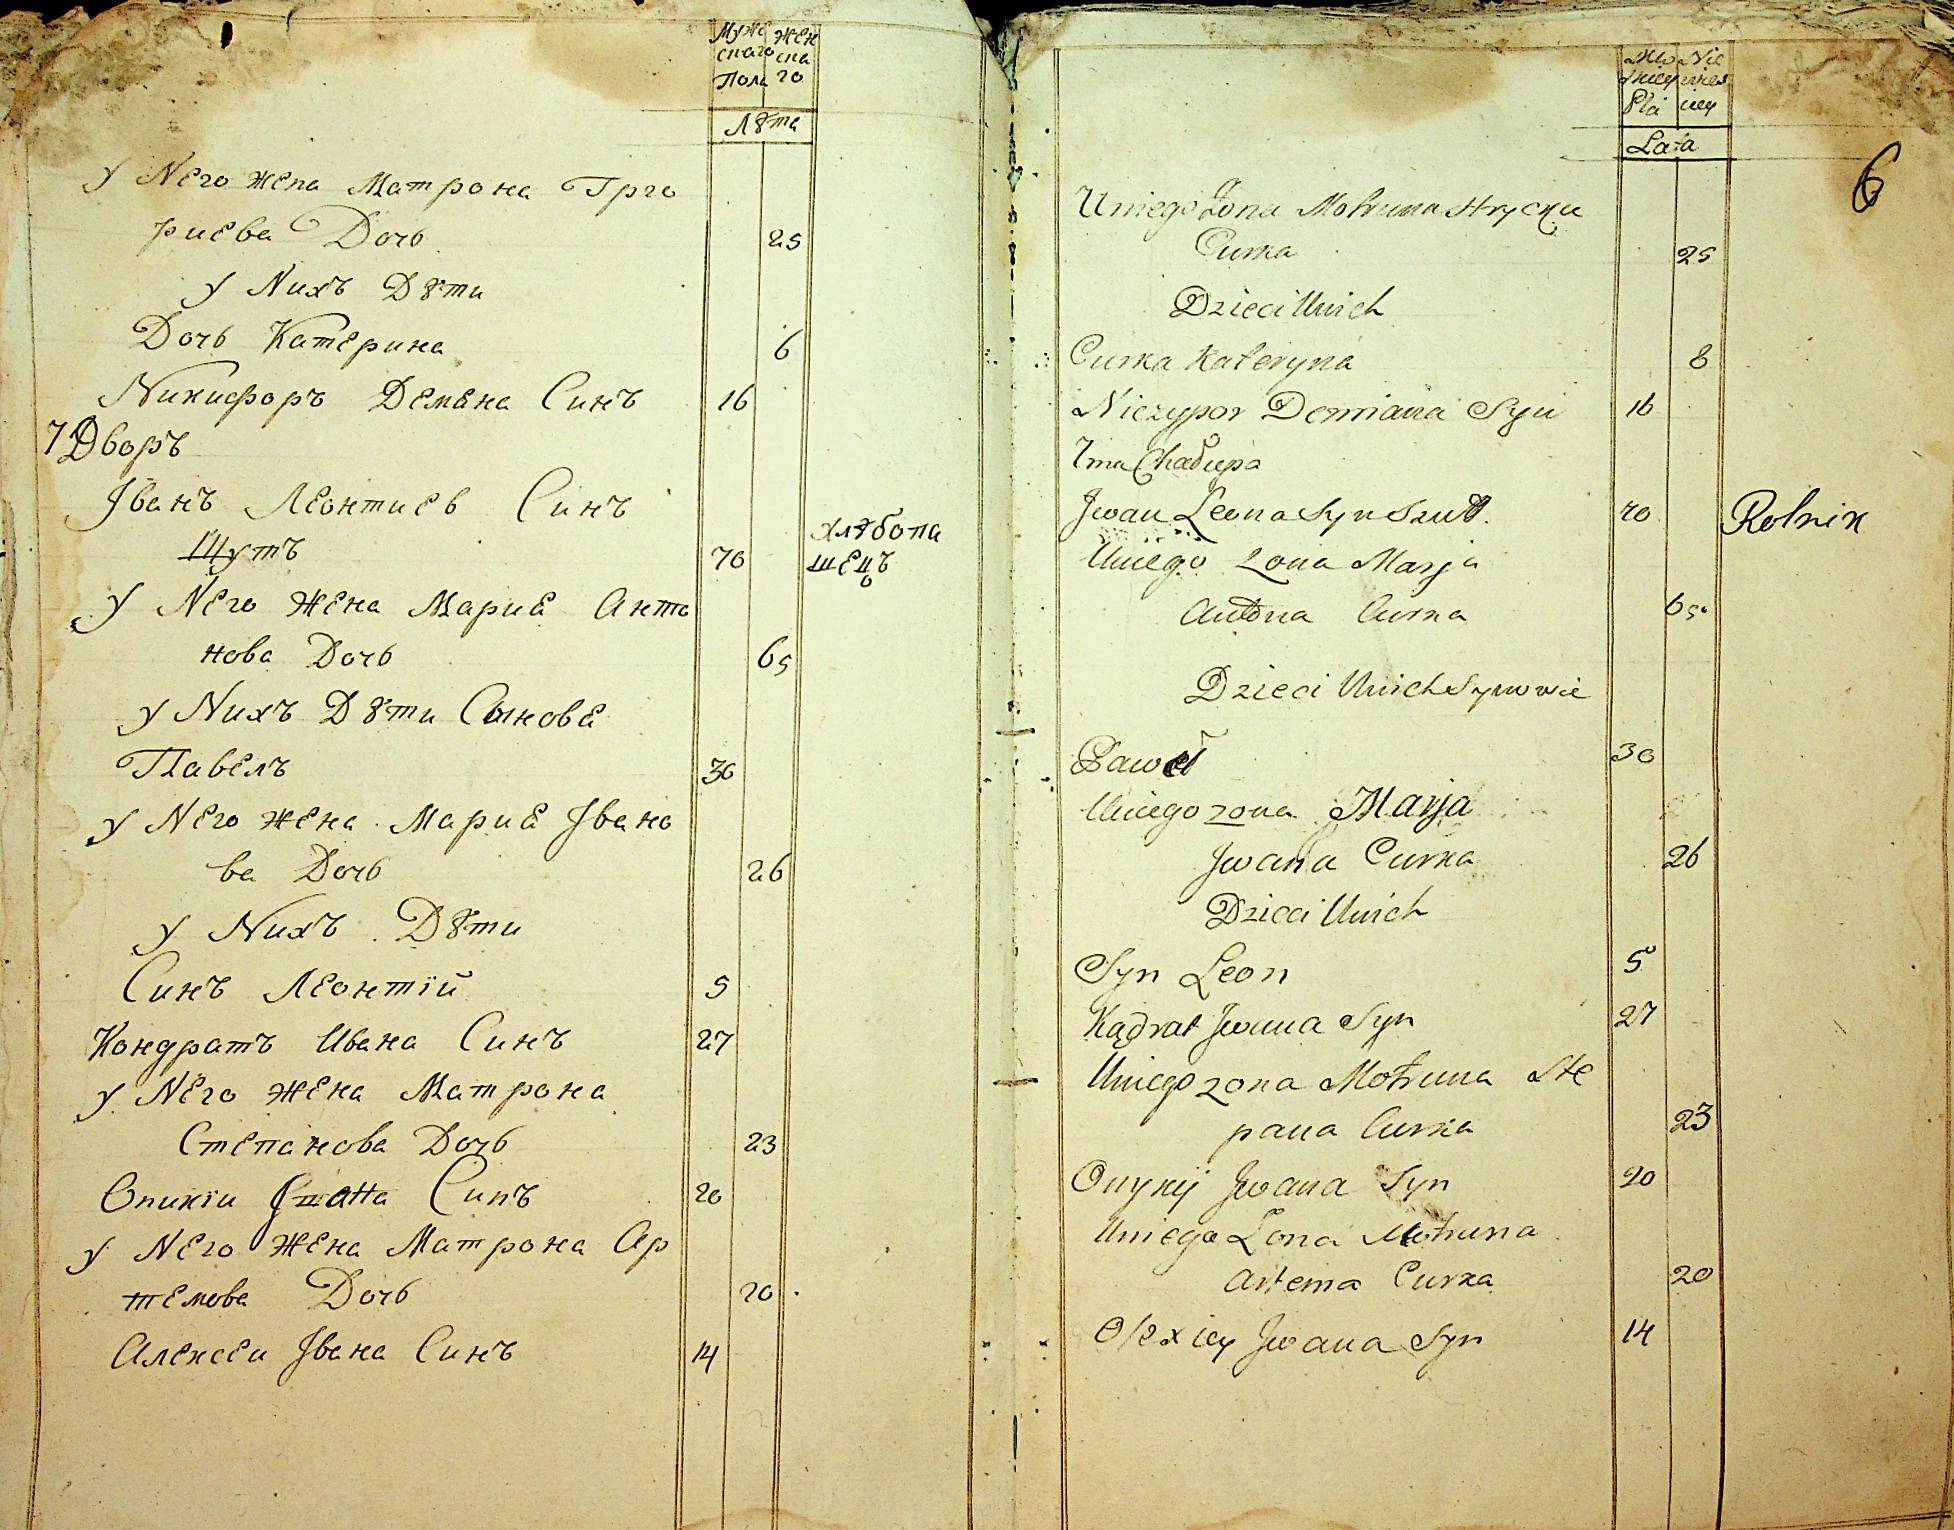 Муже Жен
скаго ска
Пола го
Лѣта
у Него жена Матрона Григо
риева Дочь 25
у Нихъ Дѣти
Дочь Катерина 6
Никифоръ Демяна Синъ 16
7 Дворъ
Іванъ Леонтиев Синъ
Щутъ 70
Хлѣбопа
шецъ
у Него Жена Мариа Анто
нова Дочь 65
у Нихъ Дѣти Сынова
Павелъ 30
у Него жена Мариа Івано
ва Дочь 26
у Нихъ Дѣти
Синъ Леонтій 5
Кондратъ Ивана Синъ 27
у Него жена Матрона
Степанова Дочь 23
Оникіи Івана Синъ 20
у Него Жена Матрона Ар
темова Дочь 20
Алексеи Івана Синъ 14
Płci
Lata
6
Uniego Żona Motruna Hrycka
Curka 25
Dzieci Unich
Curka Kateryna 8
Niczypor Demiana Syn 16
7ma Chałupa
Jwan Leona Syn Szutt. 70 Rolnik
Uniego Zona Marja
Antona Curka 65
Dzieci Unich Synowie
Paweł 30
Uniego zona Marja
Jwana Curka 26
Dzieci Unich
Syn Leon 5
Kądrat Jwana Syn 27
Uniego zona Motruna Ste
pana Curka 23
Onykij Jwana Syn 20
Uniego Zona Motruna
Artema Curka 20
Olexiey Jwana Syn 14